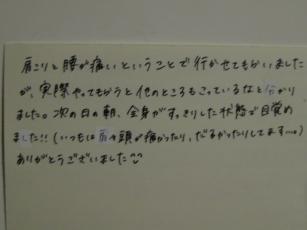 肩こりと腰が痛いということで行かせてもらいました
が、実際やってもらうと他のところもこっているなと分かり
ました。次の日の朝、全身がすっきりした状態で目覚め
ました!!(いつもは肩や頭が痛かったり、だるかったりしてます…。)
ありがとうございました